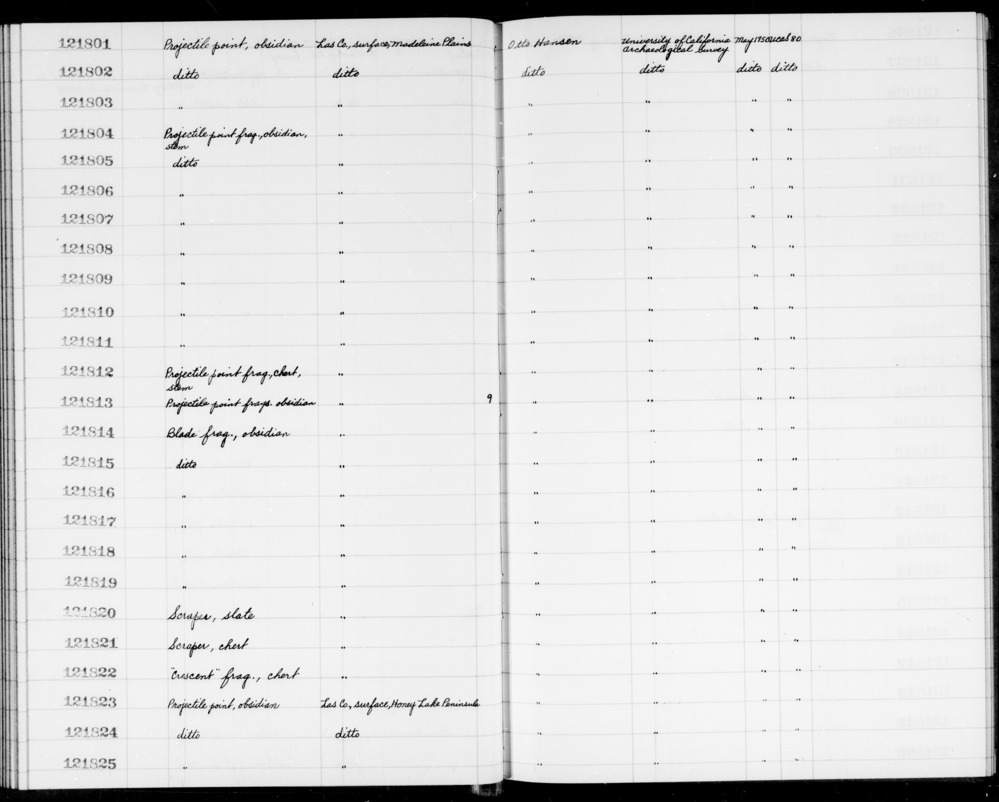 121801 Projectile point, obsidian Las Co., surface, Madeleine Plains Otto Hansen University of California Archaeological Survey May 1950 UCAS 80
121802 ditto ditto ditto ditto ditto ditto
121803 " " " " " "
121804 Projectile point frag., obsidian, stem " " " " "
121805 ditto " " " " "
121806 " " " " " "
121807 " " " " " "
121808 " " " " " "
121809 " " " " " "
121810 " " " " " "
121811 " " " " " "
121812 Projectile point frag., chert, stem " " " " "
121813 Projectile point frags. obsidian " 9 " " " "
121814 Blade frag., obsidian " " " " "
121815 ditto " " " " "
121816 " " " " " "
121817 " " " " " "
121818 " " " " " "
121819 " " " " " "
121820 Scraper, slate " " " " "
121821 Scraper, chert " " " " "
121822 "Crescent" frag., chert " " " " "
121823 Projectile point, obsidian Las Co., surface, Honey Lake Peninsula " " " "
121824 ditto ditto " " " "
121825 " " " " " "